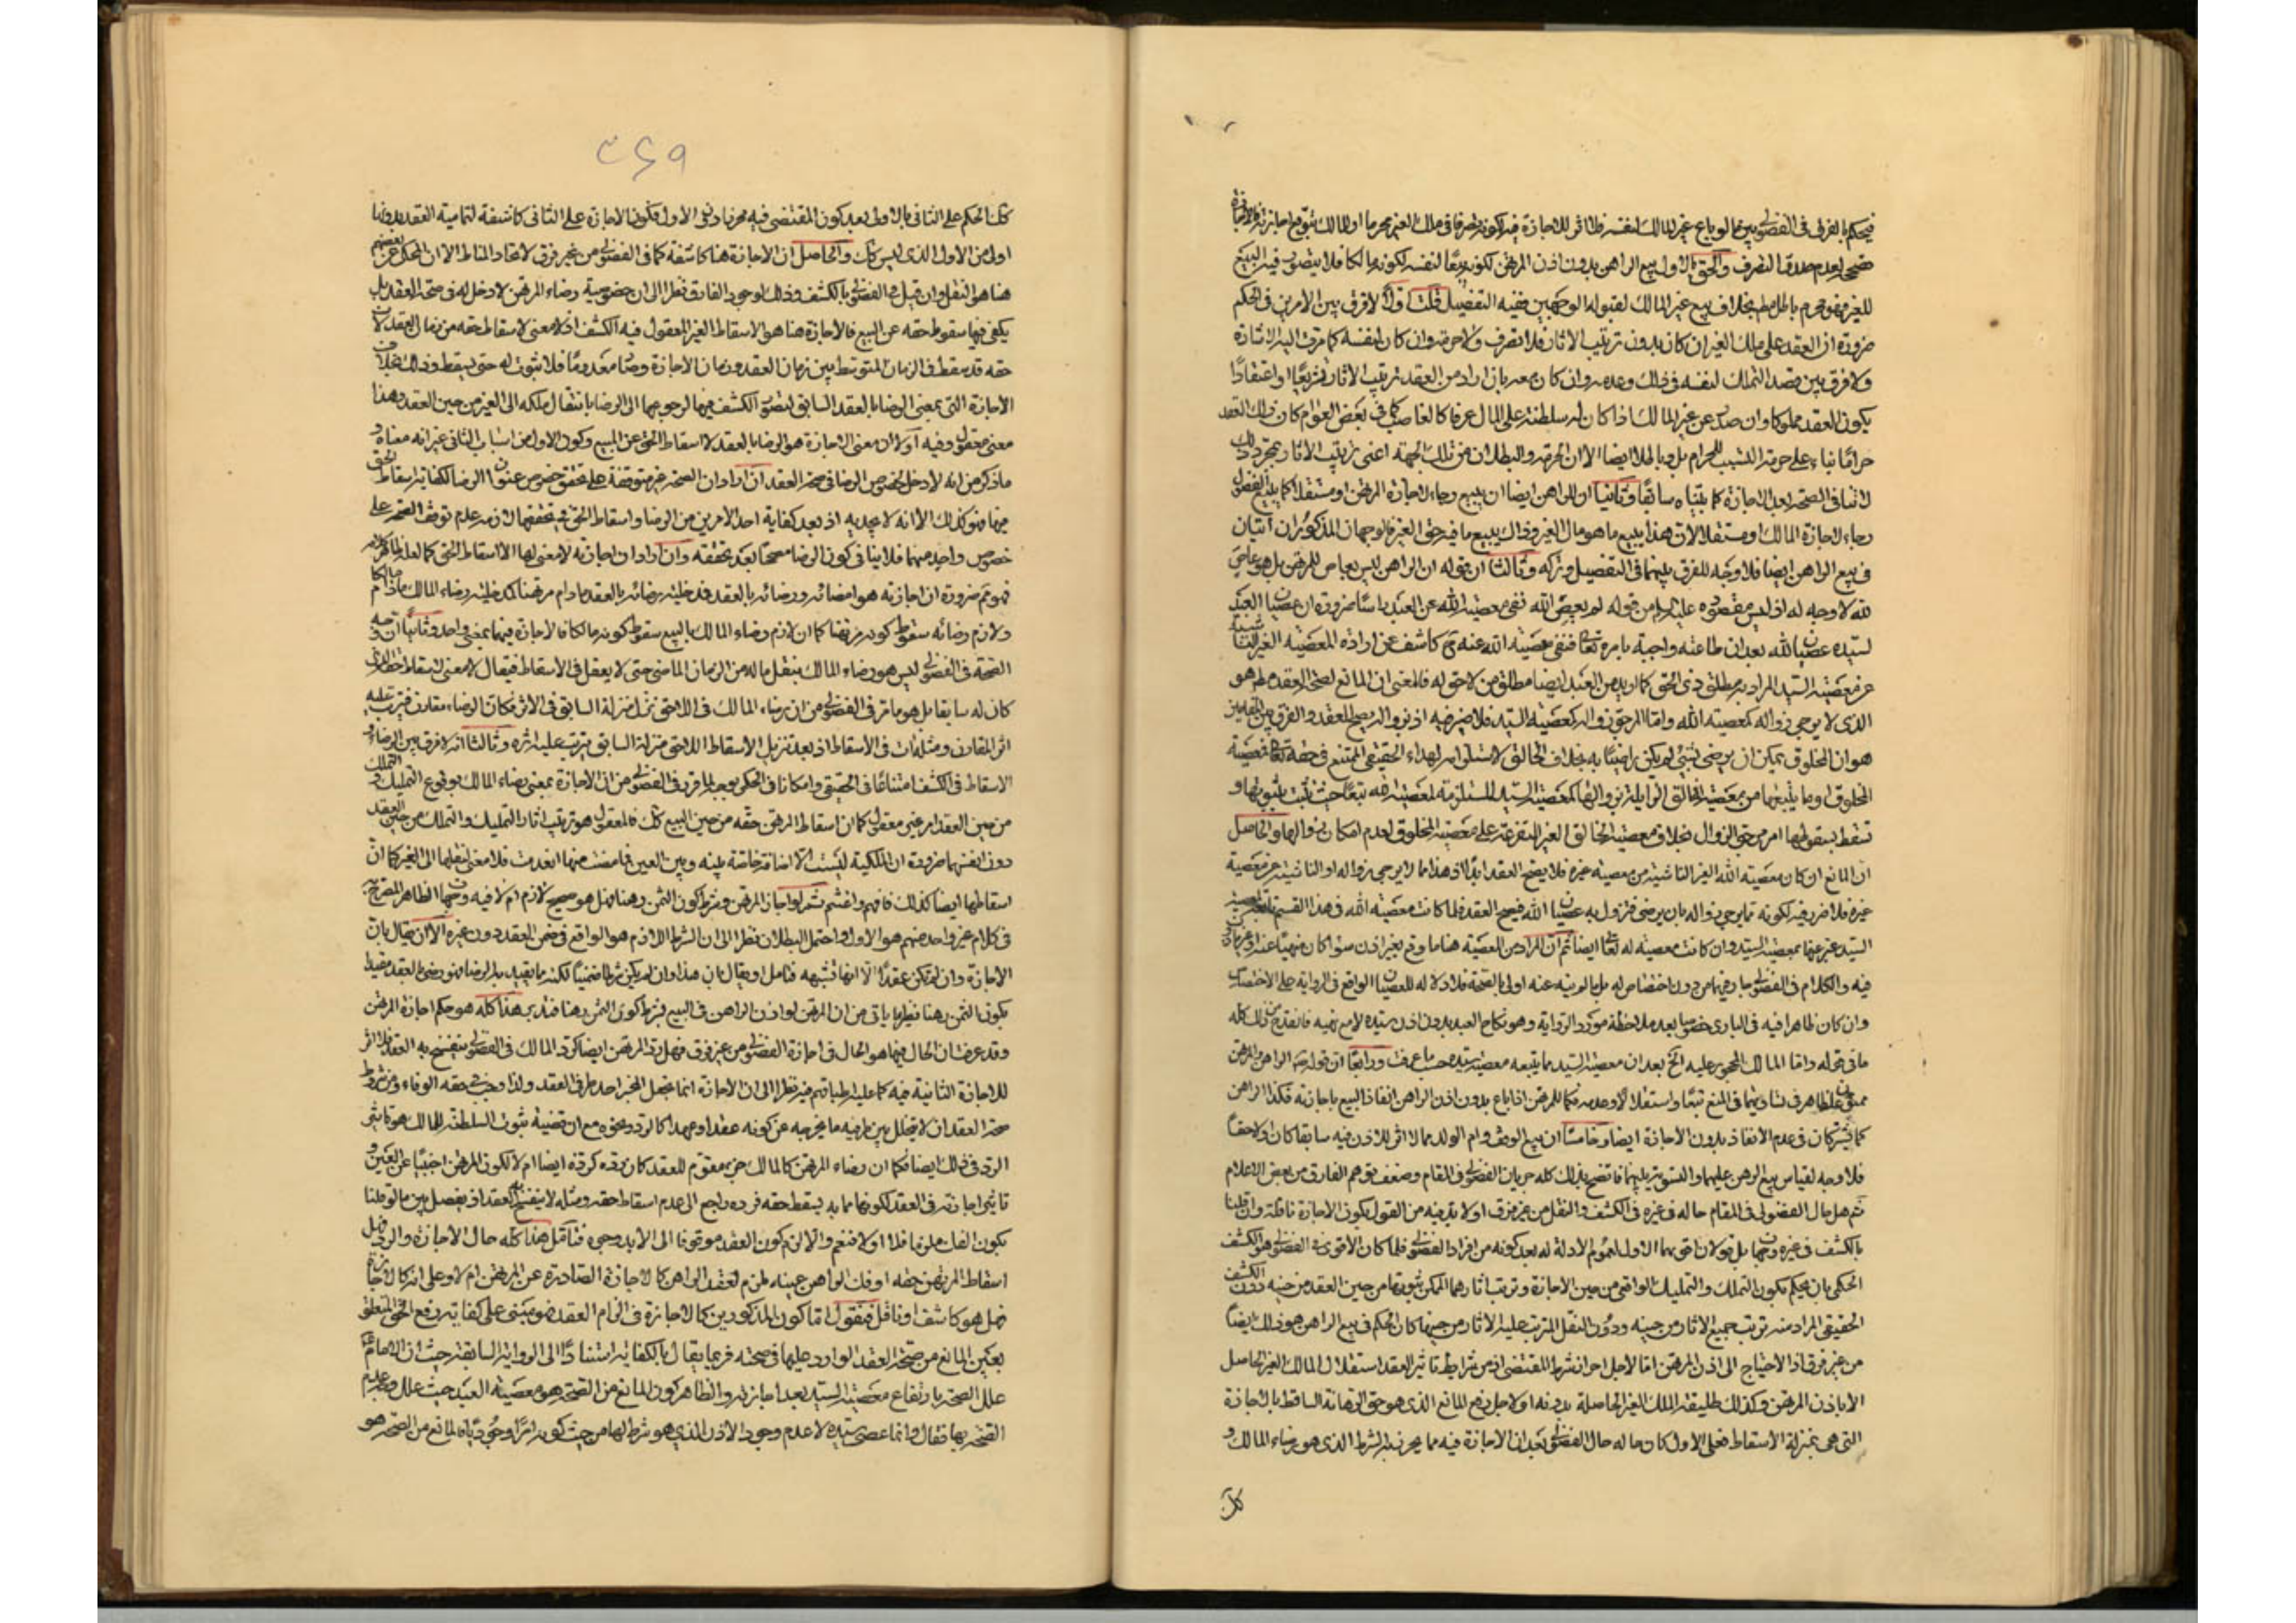 فيحكم بالفرق في الفضولي بين ما لو باع غير المالك لنفسه فلا اثر للاجازة فيه لكونه تصرفا في ملك الغير محرما او للمالك بتوقع اجازته فالاجازة
مصححة لعدم صدق التصرف والحق بالاول بيع الراهن بدون اذن المرتهن لكونه بيعا لنفسه لكونه مالكا فلا يتصور فيه البيع
للغير فهو محرم باطل مطلقا بخلاف بيع غير المالك لقبوله الوجهين ففيه التفصيل قلت اولا لا فرق بين الامرين في الحكم
ضرورة ان العقد على ملك الغير ان كان بدون ترتيب الاثار فلا تصرف ولا حرمة وان كان لنفسه كما مرت اليه الاشارة
ولا فرق بين قصد التملك لنفسه في ذلك وعدمه وان كان معه بان اراد من العقد ترتيب الاثار تشريعا او اعتقادا
يكون العقد مملكا وان صدر عن غير المالك اذا كان له سلطنة على المال عرفا كالغاصب كما في بعض العوام كان ذلك العقد
حراما بناء على حرمة التسبيب للحرام بل وباطلا ايضا الا ان الحرمة والبطلان من تلك الجهة اعني ترتيب الاثار بمجرد ذلك
لا تنافي الصحة بعد الاجازة كما بيناه سابقا وثانيا ان للراهن ايضا ان يبيع رجاء لاجازة المرتهن او مستقلا كما يبيع الفضولي
رجاء لاجازة المالك او مستقلا لان هذا يبيع ما هو مال الغير وذاك يبيع ما فيه حق الغير فالوجهان المذكوران آتيان
في بيع الراهن ايضا فلا وجه للفرق بينهما في التفصيل وتركه وثالثا ان قوله ان الراهن ليس بعاص للمرتهن بل هو عاص
لله لا وجه له اذ ليس مقصوده عليه السلام من قوله لم يعص الله نفي معصية الله عن العبد راسا ضرورة ان عصيان العبد
لسيده عصيان الله بعد ان طاعته واجبة بامره تعالى فنفي معصية الله عنه ح كاشف عن ارادة المعصية الغير الناشئة
عن معصية السيد المراد به مطلق ذي الحق كما اريد من العبد ايضا مطلق من لا حق له فالمعنى ان المانع لصحة العقد مطلقا هو
الذي لا يرجى زواله كمعصية الله واما المرجو زواله كمعصية السيد فلا ضير فيه اذ بزواله يصح العقد والفرق بين المعصيتين
هو ان المخلوق يمكن ان يرضى بشيء لم يكن راضيا به بخلاف الخالق لاستلزامه البداء الحقيقي الممتنع في حقه تعالى فمعصية
المخلوق او ما يتبعها من معصية الخالق الزايلة بزوالها كمعصية السيد المستلزمة لمعصية الله تبعا حيث تثبت بثبوتها و
تسقط بسقوطها امر مرجو الزوال بخلاف معصية الخالق الغير المتفرعة على معصية المخلوق لعدم امكان زوالها والحاصل
ان المانع ان كان معصية الله الغير الناشية من معصية غيره فلا يصح العقد ابدا اذ هذا مما لا يرجى زواله او الناشية عن معصية
غيره فلا ضرر فيه لكونه مما يرجى زواله بان يرضى فتزول به عصيان الله فيصح العقد فلما كانت معصية الله في هذا القسم تابعة لمعصية
السيد عبر عنها بمعصية السيد وان كانت معصية له تعالى ايضا ثم ان المراد من المعصية هنا ما وقع بغير اذن سواء كان منهيا عنه
فيه والكلام في الفضولي جار فيهما من دون اختصاص له بل ما لم ينه عنه اولى بالصحة فلا دلالة للعصيان الواقع في الرواية على الاختصاص
وان كان ظاهرا فيه في البادي خصوصا بعد ملاحظة مورد الرواية وهو نكاح العبد بدون اذن سيده لا مع نهيه فانقدح من ذلك كله
ما في قوله واما المالك المحجور عليه الخ بعد ان معصية السيد مما يتبعه معصية سيده حسب ما عرفت ورابعا ان قوله ص الراهن والمرتهن
ممنوعان ظاهر في تساويهما في المنع تبعا واستقلالا وعدمه فكما للمرتهن اذا باع بدون اذن الراهن انفاذ البيع باجازته فكذا الراهن
كما يشتركان في عدم الانفاذ بدون الاجازة ايضا وخامسا ان بيع الوقف وام الولد مما لا اثر للاذن فيه سابقا كان او لاحقا
فلا وجه لقياس بيع الرهن عليهما والتسوية بينهما فاتضح بذلك كله جريان الفضولي في المقام وضعف توهم الفارق من بعض الاعلام
ثم هل حال الفضولي في المقام حاله في غيره في الكشف والنقل من غير فرق او لا بد فيه من القول بكون الاجازة ناقلة وان قلنا
بالكشف في غيره وجهان بل قولان اقويهما الاول لعموم الادلة له بعد كونه من افراد الفضولي فلما كان الاقوى في الفضولي هو الكشف
الحكمي بان يحكم بكون التملك والتمليك الواقعي من حين الاجازة وترتب اثارهما الممكن ثبوتها من حين العقد من حينه دون الكشف
الحقيقي المراد منه ترتب جميع الاثار من حينه ودون النقل المترتب عليه الاثار من حينها كان الحكم في بيع الراهن هو ذلك ايضا
من غير فرق اذ الاحتياج الى اذن المرتهن اما لاجل احراز شرط المقتضي اذ من شرايط تاثير العقد استقلال المالك الغير الحاصل
الا باذن المرتهن وكذلك طلقية الملك الغير الحاصلة بدونه او لاجل رفع المانع الذي هو حق الرهانة الساقط بالاجازة
التي هي بمنزلة الاسقاط فعلى الاول كان حاله حال الفضولي بعد ان الاجازة فيه مما يحرز به الشرط الذي هو رضاء المالك و
كك
٣٦٩
كك الحكم على الثاني بالاولى بعد كون المقتضي فيه محرزا دون الاول فكون الاجازة على الثاني كاشفة لتمامية العقد بدونها
اولى من الاول الذي ليس كك والحاصل ان الاجازة هنا كاشفة كما في الفضولي من غير فرق لاتحاد المناط الا ان المحكي عن بعضهم
هنا هو النقل وان قيل في الفضولي بالكشف وذلك لوجود الفارق نظرا الى ان خصوصية رضاء المرتهن لا دخل له في صحة العقد بل
يكفي فيها سقوط حقه عن البيع فالاجازة هنا هو الاسقاط الغير المعقول فيه الكشف اذ لا معنى لاسقاط حقه من زمان العقد لان
حقه قد سقط في الزمان المتوسط بين زمان العقد وزمان الاجازة وصار معدوما فلا ثبوت له حتى يسقط وذلك بخلاف
الاجازة التي بمعنى الرضا بالعقد السابق لتصور الكشف فيها لرجوعها الى الرضا بانتقال ملكه الى الغير من حين العقد وهذا
معنى معقول وفيه اولا ان معنى الاجازة هو الرضا بالعقد لا اسقاط الحق عن المبيع وكون الاول من اسباب الثاني غير انه معناه و
ما ذكر من انه لا دخل لخصوص الرضا في صحة العقد ان اراد ان الصحة غير متوقفة على تحقق خصوص عنوان الرضا لكفاية اسقاط الحق
فيها فهو كذلك الا انه لا يجديه اذ بعد كفاية احد الامرين من الرضا واسقاط الحق في تحققها لازمه عدم توقف الصحة على
خصوص واحد منهما فلا ينافي كون الرضا مصححا بعد تحققه وان اراد ان اجازته لا معنى لها الا اسقاط الحق كما لعله ظاهر كلامه
فهو ثم ضرورة ان اجازته هو امضائه ورضائه بالعقد فدخلية رضائه بالعقد ما دام مرتهنا كدخلية رضاء المالك ما دام مالكا
ولازم رضائه سقوط كونه مرتهنا كما ان لازم رضاء المالك بالبيع سقوط كونه مالكا فالاجازة فيهما بمعنى واحد وثانيا ان وجه
الصحة في الفضولي ليس هو رضاء المالك بنقل ماله من الزمان الماضي حتى لا يعقل في الاسقاط فيقال لا معنى لاسقاط الحق الذي
كان له سابقا بل هو ما مر في الفضولي من ان رضاء المالك في اللاحق نزل منزلة السابق في الاثر فكان الرضاء مقارن فيترتب عليه
اثر المقارن ومثله آت في الاسقاط اذ بعد تنزيل الاسقاط اللاحق منزلة السابق يترتب عليه اثره وثالثا انه لا فرق بين الرضاء و
الاسقاط في الكشف امتناعا في الحقيقي وامكانا في الحكمي بوجه لما قرر في الفضولي من ان الاجازة بمعنى رضاء المالك بوقوع التمليك والتملك
من حين العقد امر غير معقول كما ان اسقاط المرتهن حقه من حين البيع كك فالمعقول هو ترتيب اثار التمليك والتملك من حين العقد
دون انفسهما ضرورة ان الملكية ليست الا اضافة خاصة بينه وبين العين فما مضت منها انعدمت فلا معنى لنقلها الى الغير كما ان
اسقاطها ايضا كذلك فافهم واغتنم ثم لو اجاز المرتهن وشرط كون الثمن رهنا فهل هو صحيح لازم ام لا فيه وجهان الظاهر المصرح به
في كلام غير واحد منهم هو الاول واحتمل البطلان نظرا الى ان الشرط اللازم هو الواقع في ضمن العقد دون غيره الا ان يقال بان
الاجازة وان لم تكن عقدا الا انها تشبهه فتامل او يقال بان هذا وان لم يكن شرطا ضمنيا لكنه مما يقيد به الرضا فهو رضى بالعقد مقيدا
بكون الثمن رهنا نظير ما ياتي من ان المرتهن لو اذن الراهن في البيع فشرط كون الثمن رهنا فتدبر هذا كله هو حكم اجازة المرتهن
وقد عرفت ان الحال فيها هو الحال في اجازة الفضولي من غير فرق فهل رد المرتهن ايضا كرد المالك في الفضولي ينفسخ به العقد فلا اثر
للاجازة الثانية فيه كما عليه اطباقهم فيه نظرا الى ان الاجازة انما تجعل المجيز احد طرفي العقد ولذا وجب في حقه الوفاء ومن شروط
صحة العقد ان لا يتخلل بين طرفيه ما يخرجه عن كونه عقدا وعهدا كالرد ونحوه مع ان قضية ثبوت السلطنة للمالك هو تاثير
الرد في ذلك ايضا فكما ان رضاء المرتهن كالمالك جزء مقوم للعقد كان رده كرده ايضا ام لا لكون المرتهن اجنبيا عن العين و
تاثير اجازته في العقد لكونها مما به يسقط حقه فرده راجع الى عدم اسقاط حقه ومثله لا ينفسخ به العقد او يفصل بين ما لو قلنا
بكون الفك ملزما فلا او لا فنعم والا لزم كون العقد موقوفا الى الابد وجوه فتامل هذا كله حال الاجازة والرد فهل
اسقاط المرتهن حقه او فك الراهن عينه ملزم لعقد الراهن كالاجازة الصادرة عن المرتهن ام لا وعلى انه كالاجازة
فهل هو كاشف او ناقل فنقول اما كون المذكورين كالاجازة في الزام العقد فهو مبني على كفاية رفع الحق المتعلق
بعين المانع من صحة العقد الوارد عليها في صحته فربما يقال بالكفاية استنادا الى الرواية السابقة حيث ان الامام ع
علل الصحة بارتفاع معصية السيد بعد اجازته والظاهر كون المانع من الصحة هو معصية العبد حيث علل ع عدم
الصحة بها فقال وانما عصى سيده لا عدم وجود الاذن الذي هو شرط لها من حيث كونه امرا وجوديا فالمانع من الصحة هو